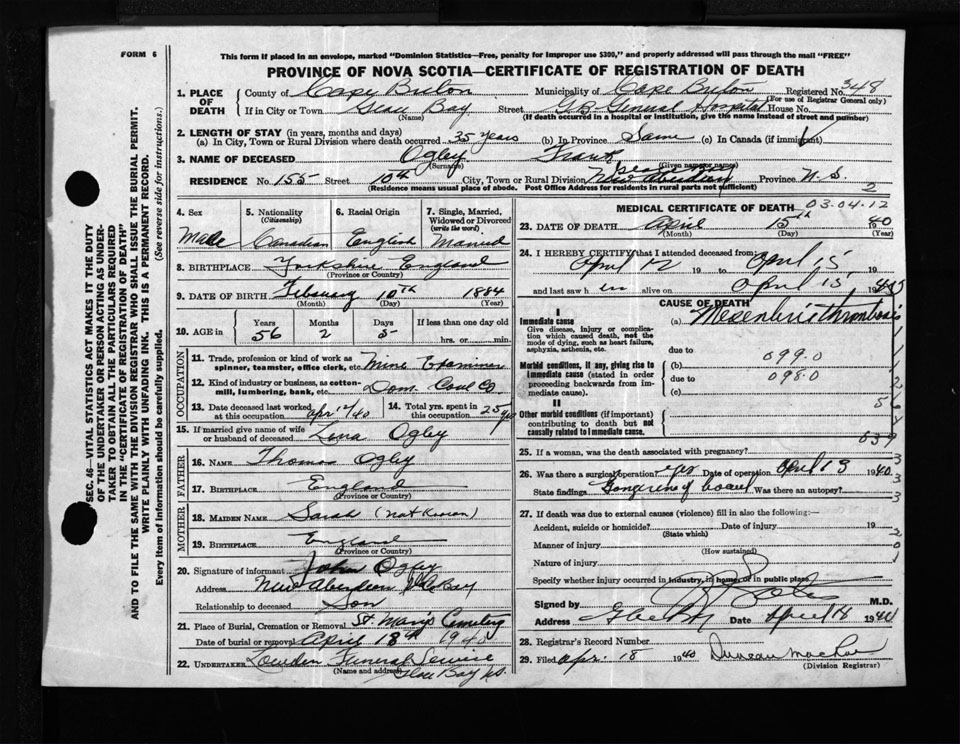 FORM 6
This form if placed in an envelope, marked "Dominion Statistics—Free, penalty for improper use $300," and properly addressed will pass through the mail "FREE"
PROVINCE OF NOVA SCOTIA—CERTIFICATE OF REGISTRATION OF DEATH
1. PLACE OF DEATH County of Cape Breton Municipality of Cape Breton Registered No. 348
(For use of Registrar General only)
If in City or Town Glace Bay Street G.B. General Hospital House No.
(Name) (If death occurred in a hospital or institution, give the name instead of street and number)
2. LENGTH OF STAY (in years, months and days)
(a) In City, Town or Rural Division where death occurred 35 years (b) In Province Same (c) In Canada (if immigrant)
3. NAME OF DECEASED Ogley Frank
(Surname) (Given name or names)
RESIDENCE No. 155 Street 10th City, Town or Rural Division New Aberdeen Province N.S. 2
(Residence means usual place of abode. Post Office Address for residents in rural parts not sufficient)
4. Sex Male
5. Nationality (Citizenship) Canadian
6. Racial Origin English
7. Single, Married, Widowed or Divorced (write the word) Married
8. BIRTHPLACE Yorkshire England
(Province or Country)
9. DATE OF BIRTH February 10th 1884
(Month) (Day) (Year)
10. AGE in Years 56 Months 2 Days 5 If less than one day old
hrs. or min.
OCCUPATION
11. Trade, profession or kind of work as spinner, teamster, office clerk, etc. Mine Examiner
12. Kind of industry or business, as cotton-mill, lumbering, bank, etc. Dom. Coal Co
13. Date deceased last worked at this occupation Apr 12/40 14. Total yrs. spent in this occupation 25 yrs
15. If married give name of wife or husband of deceased Lena Ogley
FATHER
16. NAME Thomas Ogley
17. BIRTHPLACE England
(Province or Country)
MOTHER
18. MAIDEN NAME Sarah (Not Known)
19. BIRTHPLACE England
(Province or Country)
20. Signature of informant John Ogley
Address New Aberdeen Gl. Bay
Relationship to deceased Son
21. Place of Burial, Cremation or Removal St. Mary's Cemetery
Date of burial or removal April 18th 1940
22. UNDERTAKER Lowden Funeral Service
(Name and address) Glace Bay N.S.
MEDICAL CERTIFICATE OF DEATH 03.04.12
23. DATE OF DEATH April 15th 1940
(Month) (Day)
24. I HEREBY CERTIFY that I attended deceased from
April 12 19 to April 15 19
and last saw h im alive on April 15, 1940
CAUSE OF DEATH
I
Immediate cause (a) Mesenteric thrombosis
Give disease, injury or complication which caused death, not the mode of dying, such as heart failure, asphyxia, asthenia, etc.
due to
099.0
Morbid conditions, if any, giving rise to immediate cause (stated in order proceeding backwards from immediate cause). (b)
due to
098.0
(c)
II
Other morbid conditions (if important) contributing to death but not causally related to immediate cause.
5
25. If a woman, was the death associated with pregnancy?
26. Was there a surgical operation? yes Date of operation April 13 1940
State findings Gangrene of bowel Was there an autopsy?
27. If death was due to external causes (violence) fill in also the following:—
Accident, suicide or homicide? Date of injury 19
(State which)
Manner of injury
(How sustained)
Nature of injury
Specify whether injury occurred in industry, in home or in public place
Signed by M.D.
Address Glace Bay Date April 18 1940
28. Registrar's Record Number
29. Filed Apr. 18 1940 Duncan MacRae
(Division Registrar)
SEC. 46—VITAL STATISTICS ACT MAKES IT THE DUTY
OF THE UNDERTAKER OR PERSON ACTING AS UNDER-
TAKER TO OBTAIN ALL THE PARTICULARS REQUIRED
IN THE "CERTIFICATE OF REGISTRATION OF DEATH"
AND TO FILE THE SAME WITH THE DIVISION REGISTRAR WHO SHALL ISSUE THE BURIAL PERMIT.
WRITE PLAINLY WITH UNFADING INK. THIS IS A PERMANENT RECORD.
Every item of information should be carefully supplied. (See reverse side for instructions.)